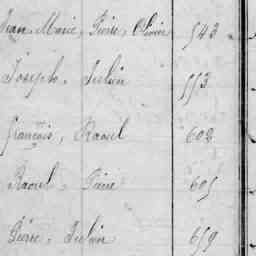 Jean Marie, Pierre, Olivier 543
Joseph, Julien 553
François, Raoul 602
Raoul, Pierre 605
Pierre, Julien 659